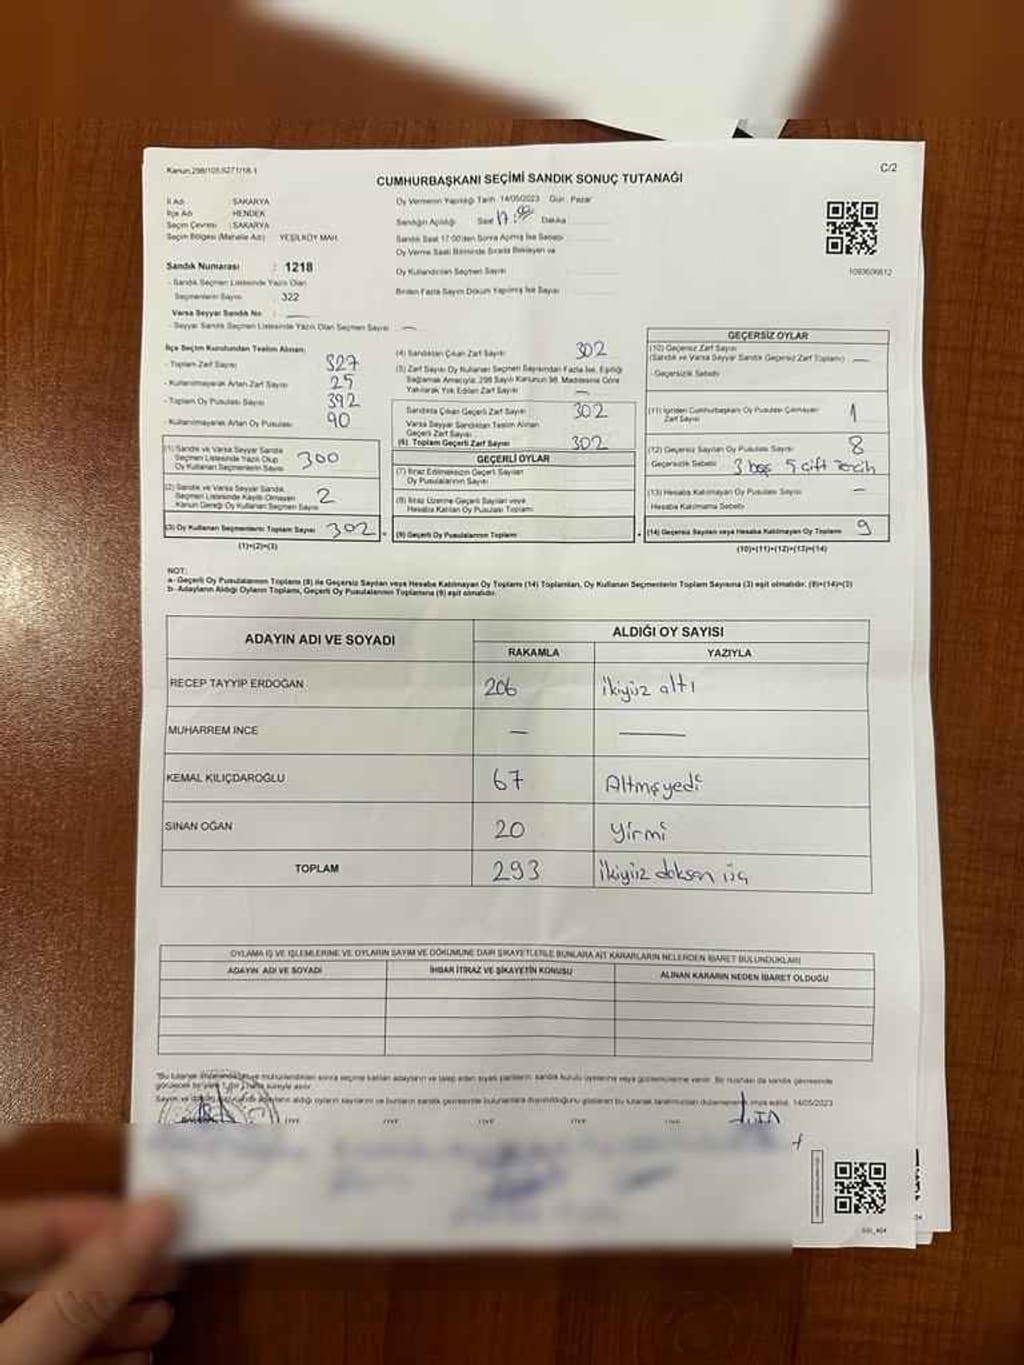 Kanun:298/105,6271/18-1
C/2
CUMHURBAŞKANI SEÇİMİ SANDIK SONUÇ TUTANAĞI
İl Adı SAKARYA
İlçe Adı HENDEK
Seçim Çevresi : SAKARYA
Seçim Bölgesi (Mahalle Adı) YEŞİLKÖY MAH.
Oy Vermenin Yapıldığı Tarih 14/05/2023 Gün Pazar
Sandığın Açıldığı Saat 17:00 Dakika
Sandık Saat 17:00'den Sonra Açılmış İse Sebebi
Oy Verme Saati Bitiminde Sırada Bekleyen ve
Oy Kullandırılan Seçmen Sayısı
Birden Fazla Sayım Döküm Yapılmış İse Sayısı
1093606612
Sandık Numarası : 1218
- Sandık Seçmen Listesinde Yazılı Olan
Seçmenlerin Sayısı 322
Varsa Seyyar Sandık No : —
- Seyyar Sandık Seçmen Listesinde Yazılı Olan Seçmen Sayısı —
İlçe Seçim Kurulundan Teslim Alınan:
- Toplam Zarf Sayısı 327
- Kullanılmayarak Artan Zarf Sayısı 25
- Toplam Oy Pusulası Sayısı 392
- Kullanılmayarak Artan Oy Pusulası 90
(1) Sandık ve Varsa Seyyar Sandık
Seçmen Listesinde Yazılı Olup
Oy Kullanan Seçmenlerin Sayısı 300
(2) Sandık ve Varsa Seyyar Sandık
Seçmen Listesinde Kayıtlı Olmayan
Kanun Gereği Oy Kullanan Seçmen Sayısı 2
(3) Oy Kullanan Seçmenlerin Toplam Sayısı 302
(1)+(2)=(3)
(4) Sandıktan Çıkan Zarf Sayısı 302
(5) Zarf Sayısı Oy Kullanan Seçmen Sayısından Fazla İse, Eşitliği
Sağlamak Amacıyla; 298 Sayılı Kanunun 98. Maddesine Göre
Yakılarak Yok Edilen Zarf Sayısı —
Sandıkta Çıkan Geçerli Zarf Sayısı 302
Varsa Seyyar Sandıktan Teslim Alınan
Geçerli Zarf Sayısı
(6) Toplam Geçerli Zarf Sayısı 302
GEÇERLİ OYLAR
(7) İtiraz Edilmeksizin Geçerli Sayılan
Oy Pusulalarının Sayısı
(8) İtiraz Üzerine Geçerli Sayılan veya
Hesaba Katılan Oy Pusulası Toplamı
(9) Geçerli Oy Pusulalarının Toplamı
GEÇERSİZ OYLAR
(10) Geçersiz Zarf Sayısı
(Sandık ve Varsa Seyyar Sandık Geçersiz Zarf Toplamı) —
- Geçersizlik Sebebi
(11) İçinden Cumhurbaşkanı Oy Pusulası Çıkmayan
Zarf Sayısı 1
(12) Geçersiz Sayılan Oy Pusulası Sayısı 8
Geçersizlik Sebebi 3 boş 5 çift Tercih
(13) Hesaba Katılmayan Oy Pusulası Sayısı —
Hesaba Katılmama Sebebi
(14) Geçersiz Sayılan veya Hesaba Katılmayan Oy Toplamı 9
(10)+(11)+(12)+(13)=(14)
NOT:
a- Geçerli Oy Pusulalarının Toplamı (9) ile Geçersiz Sayılan veya Hesaba Katılmayan Oy Toplamı (14) Toplamları, Oy Kullanan Seçmenlerin Toplam Sayısına (3) eşit olmalıdır. (9)+(14)=(3)
b- Adayların Aldığı Oyların Toplamı, Geçerli Oy Pusulalarının Toplamına (9) eşit olmalıdır.
ADAYIN ADI VE SOYADI
ALDIĞI OY SAYISI
RAKAMLA YAZIYLA
RECEP TAYYİP ERDOĞAN 206 ikiyüz altı
MUHARREM İNCE — —
KEMAL KILIÇDAROĞLU 67 Altmışyedi
SİNAN OĞAN 20 yirmi
TOPLAM 293 ikiyüz doksan üç
OYLAMA İŞ VE İŞLEMLERİNE VE OYLARIN SAYIM VE DÖKÜMÜNE DAİR ŞİKAYETLERLE BUNLARA AİT KARARLARIN NELERDEN İBARET BULUNDUKLARI
ADAYIN ADI VE SOYADI
İHBAR İTİRAZ VE ŞİKAYETİN KONUSU
ALINAN KARARIN NEDEN İBARET OLDUĞU
sonra seçime katılan adayların ve talep eden siyasi partilerin sandık kurulu üyelerine veya gözlemcilerine verilir. Bir nüshası da sandık çevresinde
aldığı oyların sayılarını ve bunların sandık çevresinde bulunanlara duyurulduğunu gösteren bu tutanak tarafımızdan düzenlenerek imza edildi. 14/05/2023